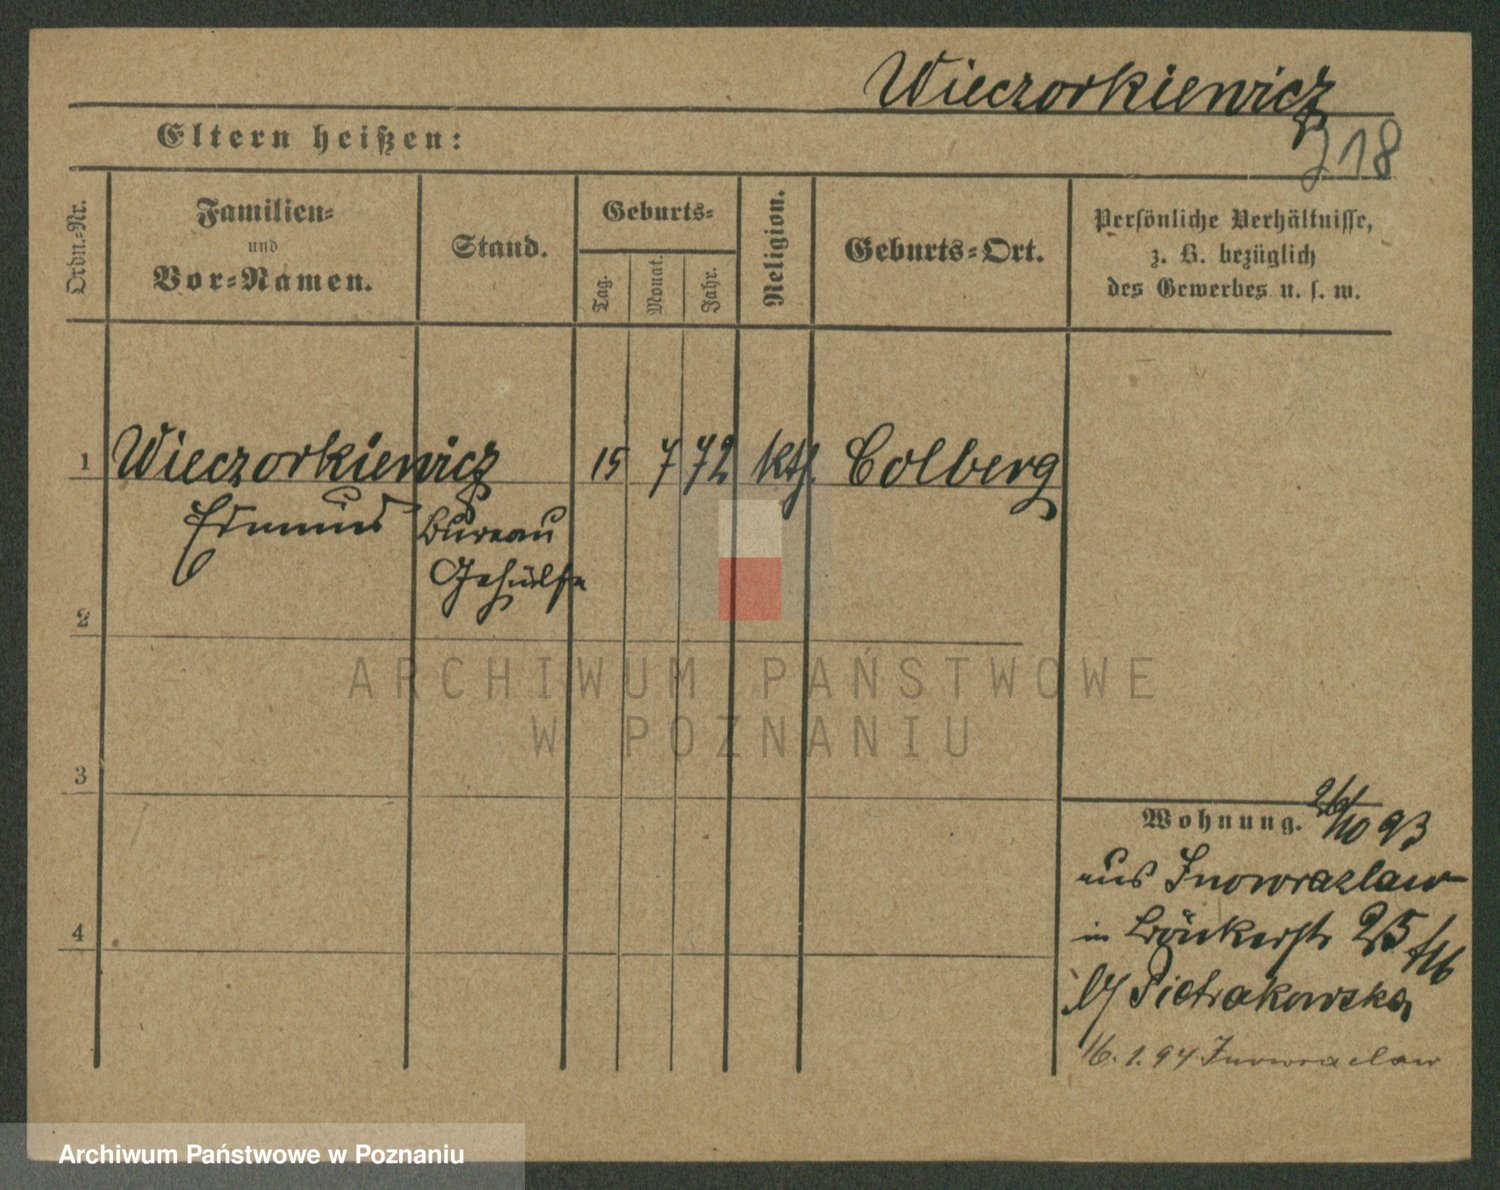 Wieczorkiewicz
218
Eltern heißen:
Ordn.-Nr.
Familien-
und
Vor-Namen.
Stand.
Geburts-
Tag.
Monat.
Jahr.
Religion.
Geburts-Ort.
Persönliche Verhältnisse,
z. B. bezüglich
des Gewerbes u. s. w.
1 Wieczorkiewicz 15 7 72 kth. Colberg
Edmund Bureau
Gehülfe
2
3
4
ARCHIWUM PAŃSTWOWE
W POZNANIU
Wohnung. 26/10 93
aus Inowrazlaw
in Bäckerstr 25
b/ Pietrakowska
16. 1. 94 Inowraclaw
Archiwum Państwowe w Poznaniu